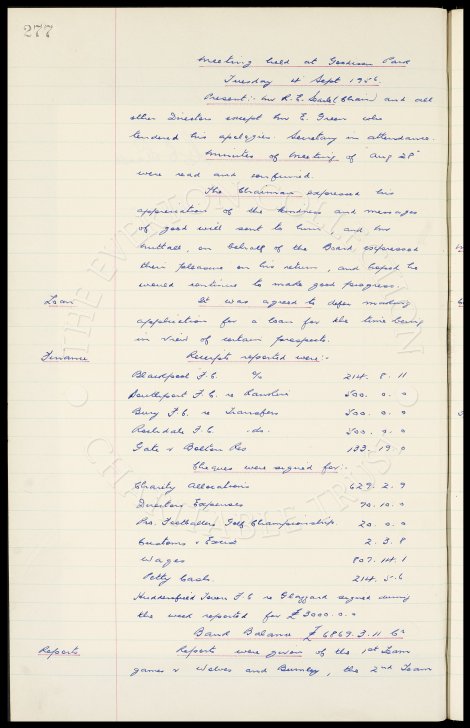 277
Meeting held at Goodison Park
Tuesday 4 Sept 1956
Present:- Mr R. E. Searle (Chair) and all
other Directors except Mr E. Green who
tendered his apologies. Secretary in attendance.
Minutes of Meeting of Aug 28
were read and confirmed.
The Chairman expressed his
appreciation of the kindness and messages
of good will sent to him, and Mr
Nuttall, on behalf of the Board, expressed
their pleasure on his return, and hoped he
would continue to make good progress.
Loan It was agreed to defer making
application for a loan for the time being
in view of certain prospects.
Finance Receipts reported were:-
Blackpool F.C. % 214. 8. 11
Southport F.C. re 500. 0. 0
Bury F.C. re Transfers 500. 0. 0
Rochdale F.C. do. 500. 0. 0
Gate v Bolton Res 133. 19. 0
Cheques were signed for:-
Charity Allocations 627. 2. 9
Directors Expenses 70. 10. 0
Pro. Footballers Golf Championship 20. 0. 0
Customs & Excise 2. 3. 8
Wages 807. 14. 1
Petty Cash 214. 5. 6
Huddersfield Town F.C. re Glazzard signed during
the week reported for £3000. 0. 0
Bank Balance £6869. 3. 11
Reports Reports were given of the 1st Team
games v Wolves and Burnley, the 2nd Team
THE EVERTON COLLECTION
CHARITABLE TRUST